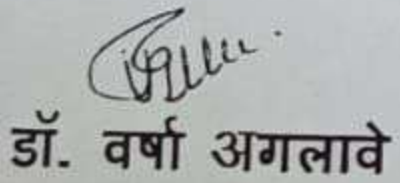 डॉ. वर्षा अगलावे